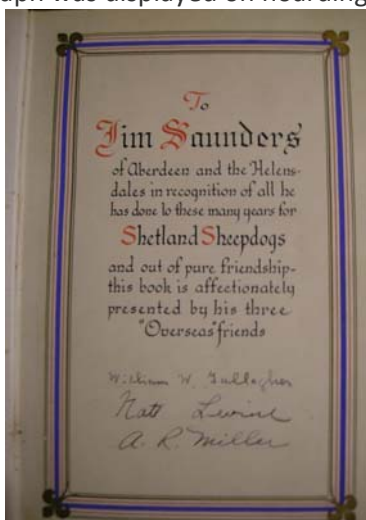 was displayed on hoarding
To
Jim Saunders
of Aberdeen and the Helens-
dales in recognition of all he
has done lo these many years for
Shetland Sheepdogs
and out of pure friendship-
this book is affectionately
presented by his three
"Overseas" friends
William W. Gallagher
Natt Levine
A. R. Miller